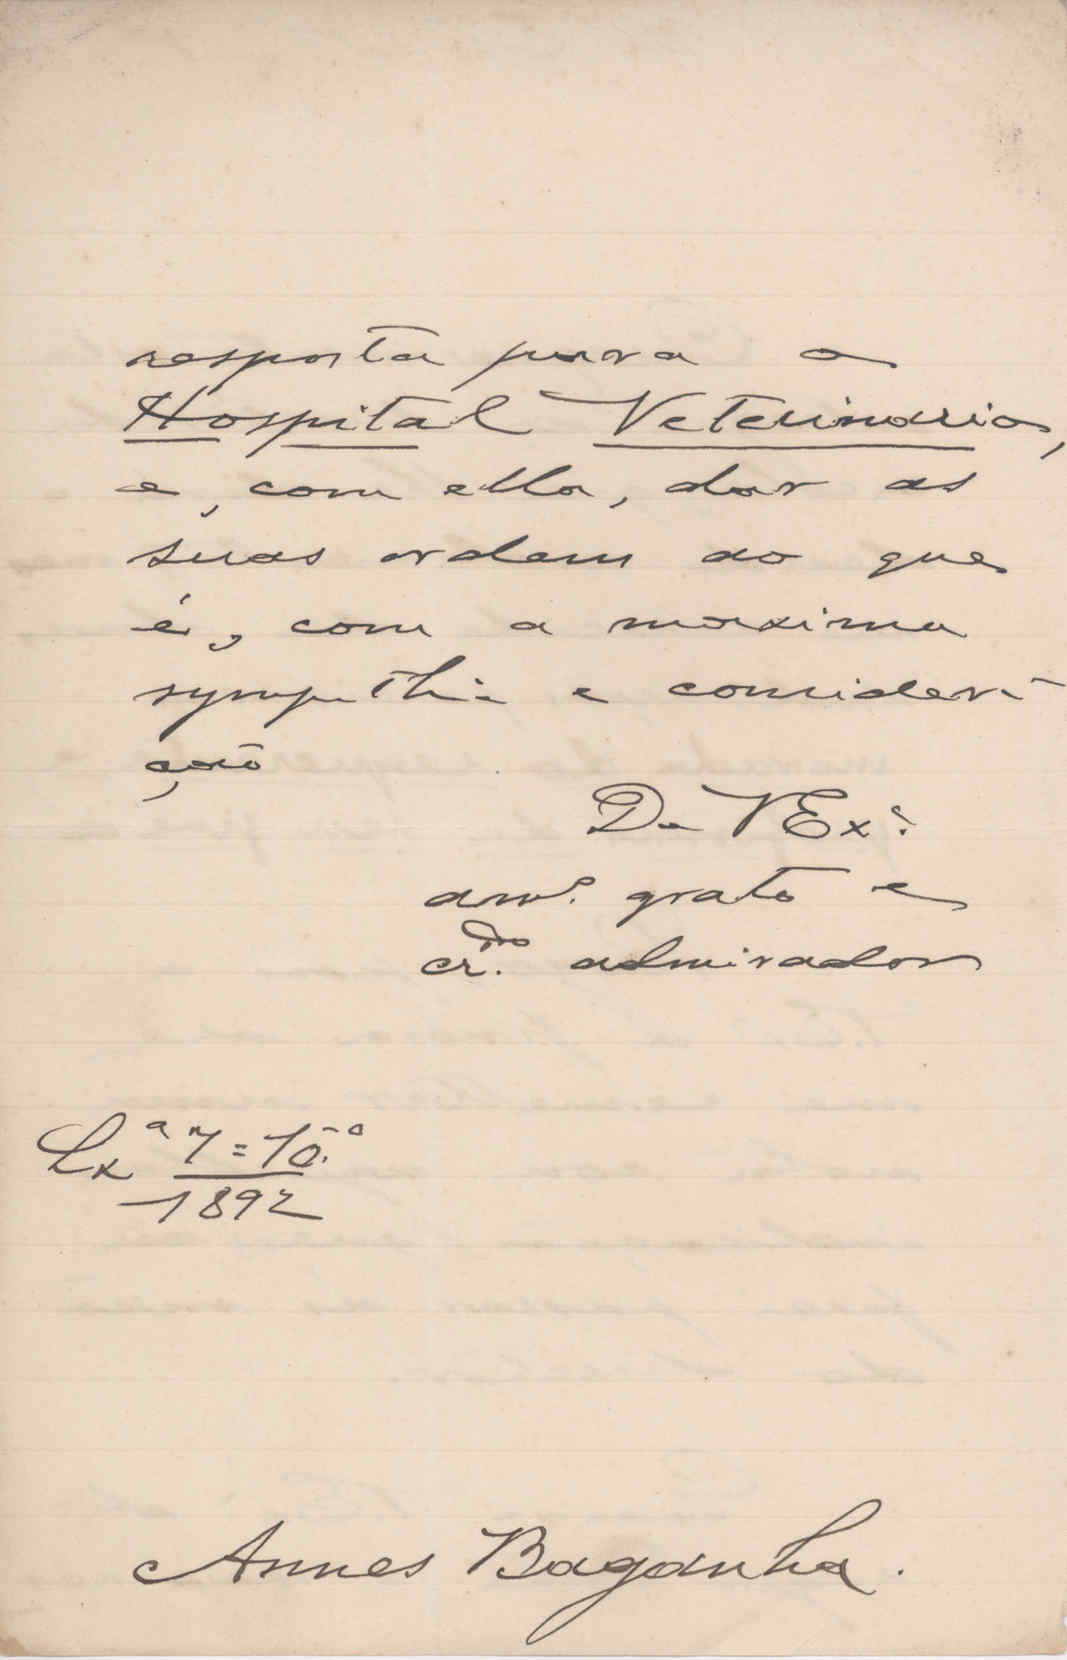 resposta para o
Hospital Veterinario,
e, com ella, dar as
suas ordens ao que
é, com a maxima
sympathia e consider-
ação
De V Exª.
amº. grato e
cr.do admirador
Lxª 7=10.º
1892
Annes Baganha.